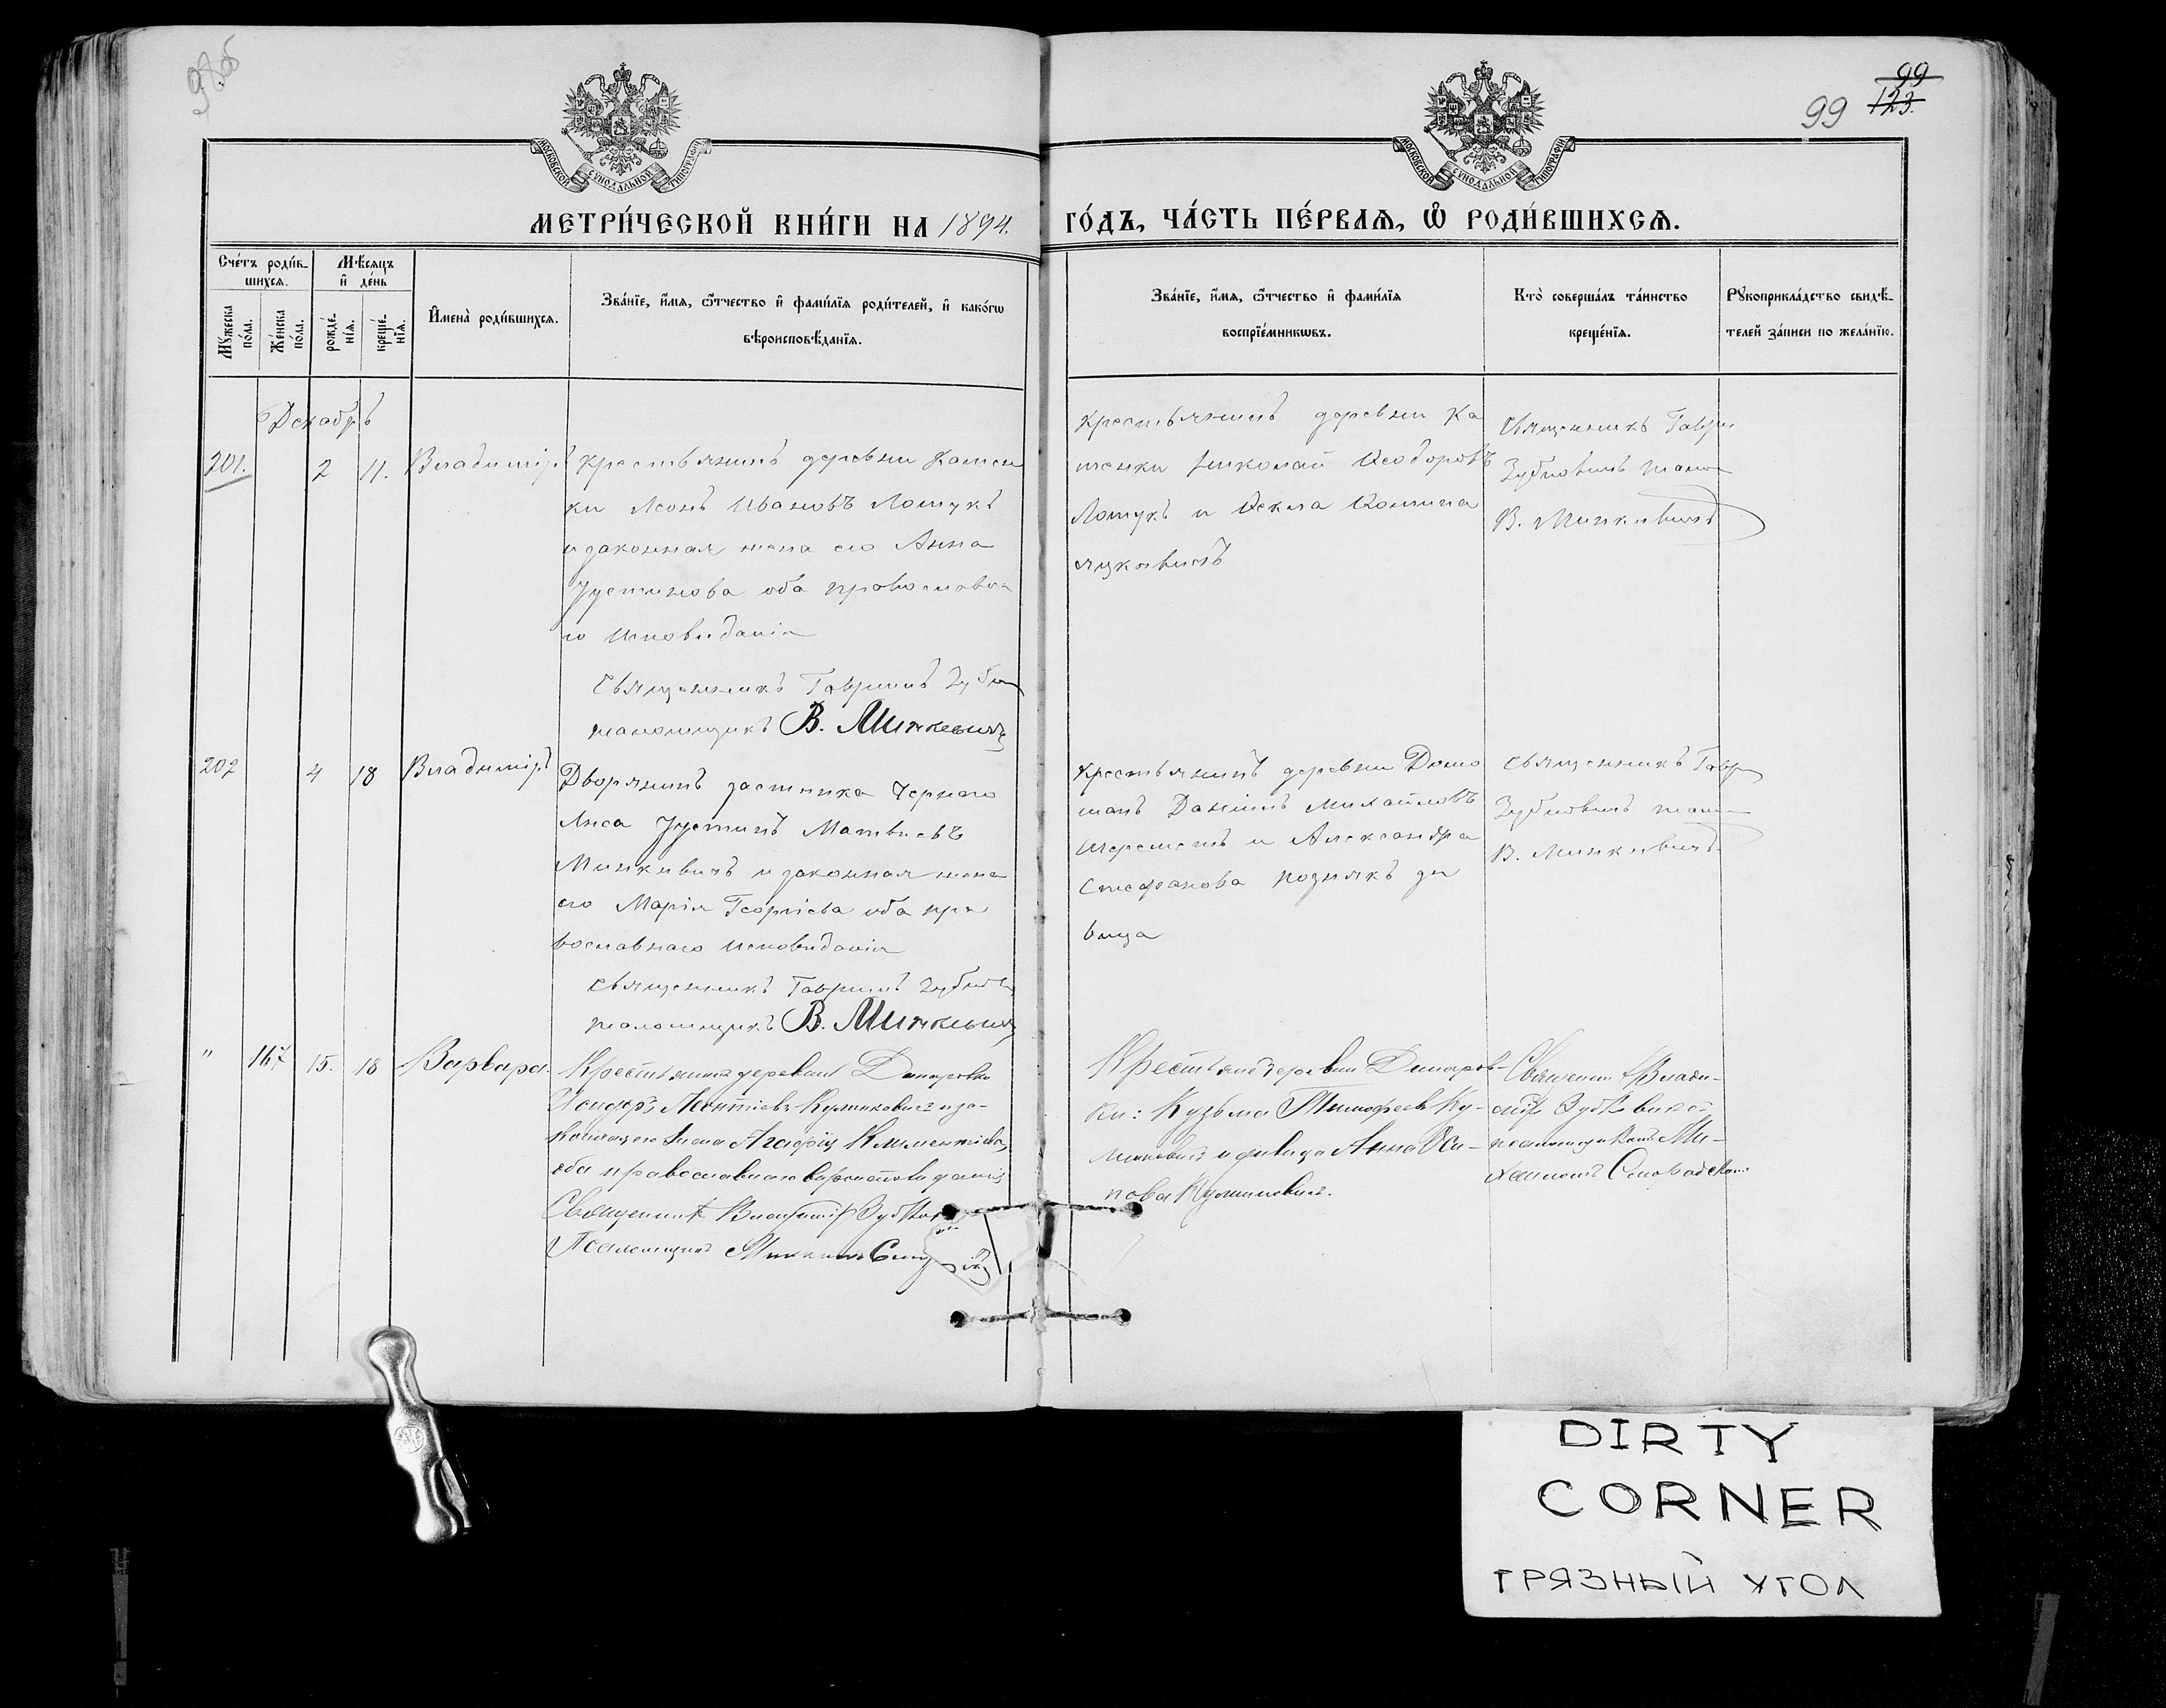 98об
99
123.
99
МОСКОВСКОЙ СѴНОДАЛЬНОЙ ТИПОГРАФІИ
МОСКОВСКОЙ СѴНОДАЛЬНОЙ ТИПОГРАФІИ
МЕТРИ́ЧЕСКОЙ КНИ́ГИ НА 1894.
ГО́ДЪ, ЧА́СТЬ ПЕ́РВАѦ, Ѡ РОДИ́ВШИХСѦ.
Сче́тъ роди́в-
шихсѧ.
Мꙋ́жеска по́ла.
Же́нска по́ла.
Мѣ́сѧцъ
и҆ де́нь
рожде́-нїѧ.
креще́-нїѧ.
И҆мена̀ роди́вшихсѧ.
Зва́нїе, и҆́мѧ, ѻ҆́тчество и҆ фами́лїѧ роди́телей, и҆ како́гѡ
вѣроисповѣ́данїѧ.
Зва́нїе, и҆́мѧ, ѻ҆́тчество и҆ фами́лїѧ
воспрїе́мникѡвъ.
Кто̀ соверша́лъ та́инство
креще́нїѧ.
Рꙋкоприкла́дство свидѣ́-
телей за́писи по жела́нїю.
Декабрь
201.
2
11.
Владиміръ
Крестьянинъ деревни Камен
ки Леонъ Ивановъ Лотукъ
и законная жена его Анна
Іустинова оба православна
го исповѣданія
Священникъ Гавріилъ
псаломщикъ В. Минкевичъ
Крестьянинъ деревни Ка
менки Николай Ѳеодоровъ
Лотукъ и Ѳекла
Священникъ Гаврі
Зубковичъ псало
В. Минкевичъ
202
4
18
Владиміръ
Дворянинъ застѣнка Чернаго
Лѣса Іустинъ Матвѣевъ
Минкевичъ и законная жена
его Марія Георгіева оба пра
вославнаго исповѣданія
Священникъ Гавріилъ Зубков
псаломщикъ В. Минкевичъ
Крестьянинъ деревни Домо
шанъ Даніилъ Михайловъ
Шереметъ и Александра
Стефанова Познякъ дѣ
вица
Священникъ Гаврі
Зубковичъ псал
В. Минкевичъ
"
167
15.
18
Варвара.
Крестьянинъ деревни
Леонтіевъ и за-
конная его жена Агафія Климентіева,
оба православнаго вѣроисповѣданія
Священникъ Владиміръ Зубков
Псаломщикъ Михаилъ
Крестьянинъ деревни
ки: Кузьма Тимофеевъ Ку-
и дѣвица Анна Оси-
пова
Священникъ Влади-
міръ Зубковичъ съ
псаломщикомъ Ми-
хаиломъ
DIRTY
CORNER
ГРЯЗНЫЙ УГОЛ